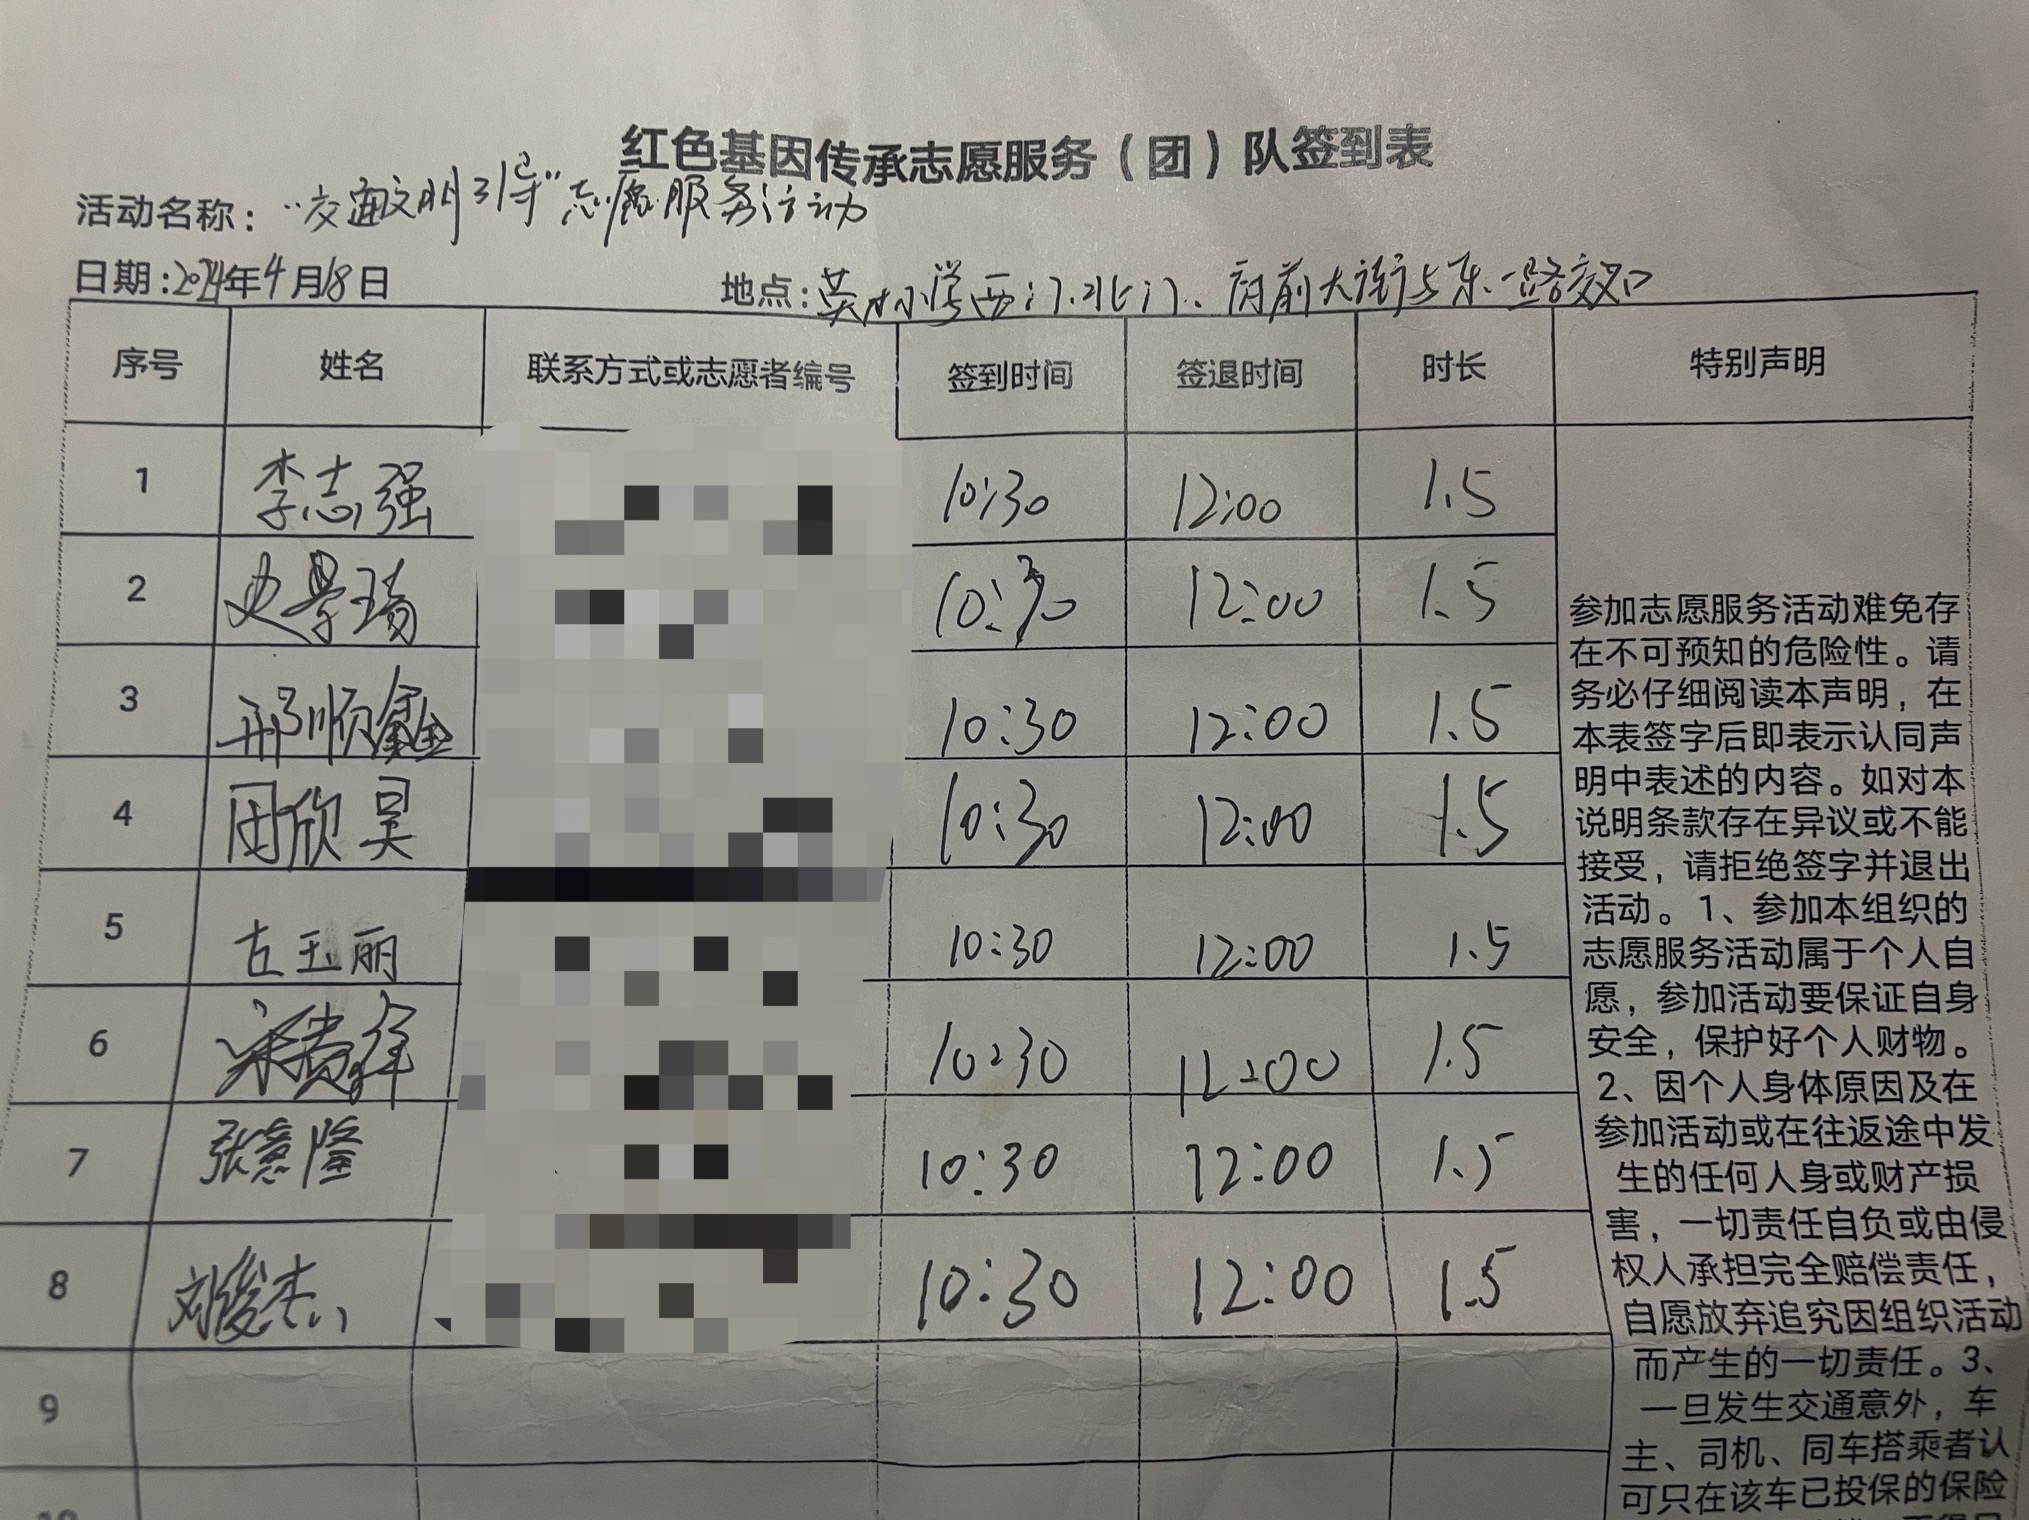 红色基因传承志愿服务（团）队签到表
活动名称："交通文明引导"志愿服务活动
日期:2024年4月18日 地点:英才小学西门、北门、府前大街与东一路交叉口
序号 姓名 联系方式或志愿者编号 签到时间 签退时间 时长 特别声明
1 李志强 10:30 12:00 1.5
2 史景瑞 10:30 12:00 1.5
3 邢顺鑫 10:30 12:00 1.5
4 田欣昊 10:30 12:00 1.5
5 左玉丽 10:30 12:00 1.5
6 10:30 12:00 1.5
7 张意隆 10:30 12:00 1.5
8 刘俊杰 10:30 12:00 1.5
9
10
参加志愿服务活动难免存
在不可预知的危险性。请
务必仔细阅读本声明，在
本表签字后即表示认同声
明中表述的内容。如对本
说明条款存在异议或不能
接受，请拒绝签字并退出
活动。1、参加本组织的
志愿服务活动属于个人自
愿，参加活动要保证自身
安全，保护好个人财物。
2、因个人身体原因及在
参加活动或在往返途中发
生的任何人身或财产损
害，一切责任自负或由侵
权人承担完全赔偿责任，
自愿放弃追究因组织活动
而产生的一切责任。3、
一旦发生交通意外，车
主、司机、同车搭乘者认
可只在该车已投保的保险